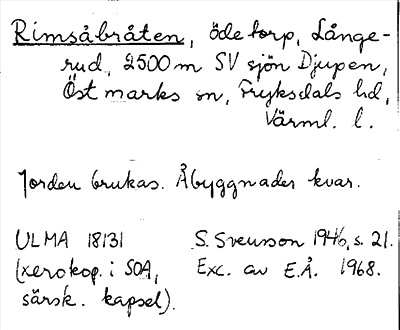 Rimsåbråten, ödetorp, Långe-
rud, 2500 m SV sjön Djupen,
Östmarks sn, Fryksdals hd,
Värml. l.
Jorden brukas. Åbyggnader kvar.
ULMA 18131 S. Svensson 1946, s. 21.
(xerokop. i SOA, Exc. av E.Å. 1968.
särsk. kapsel).